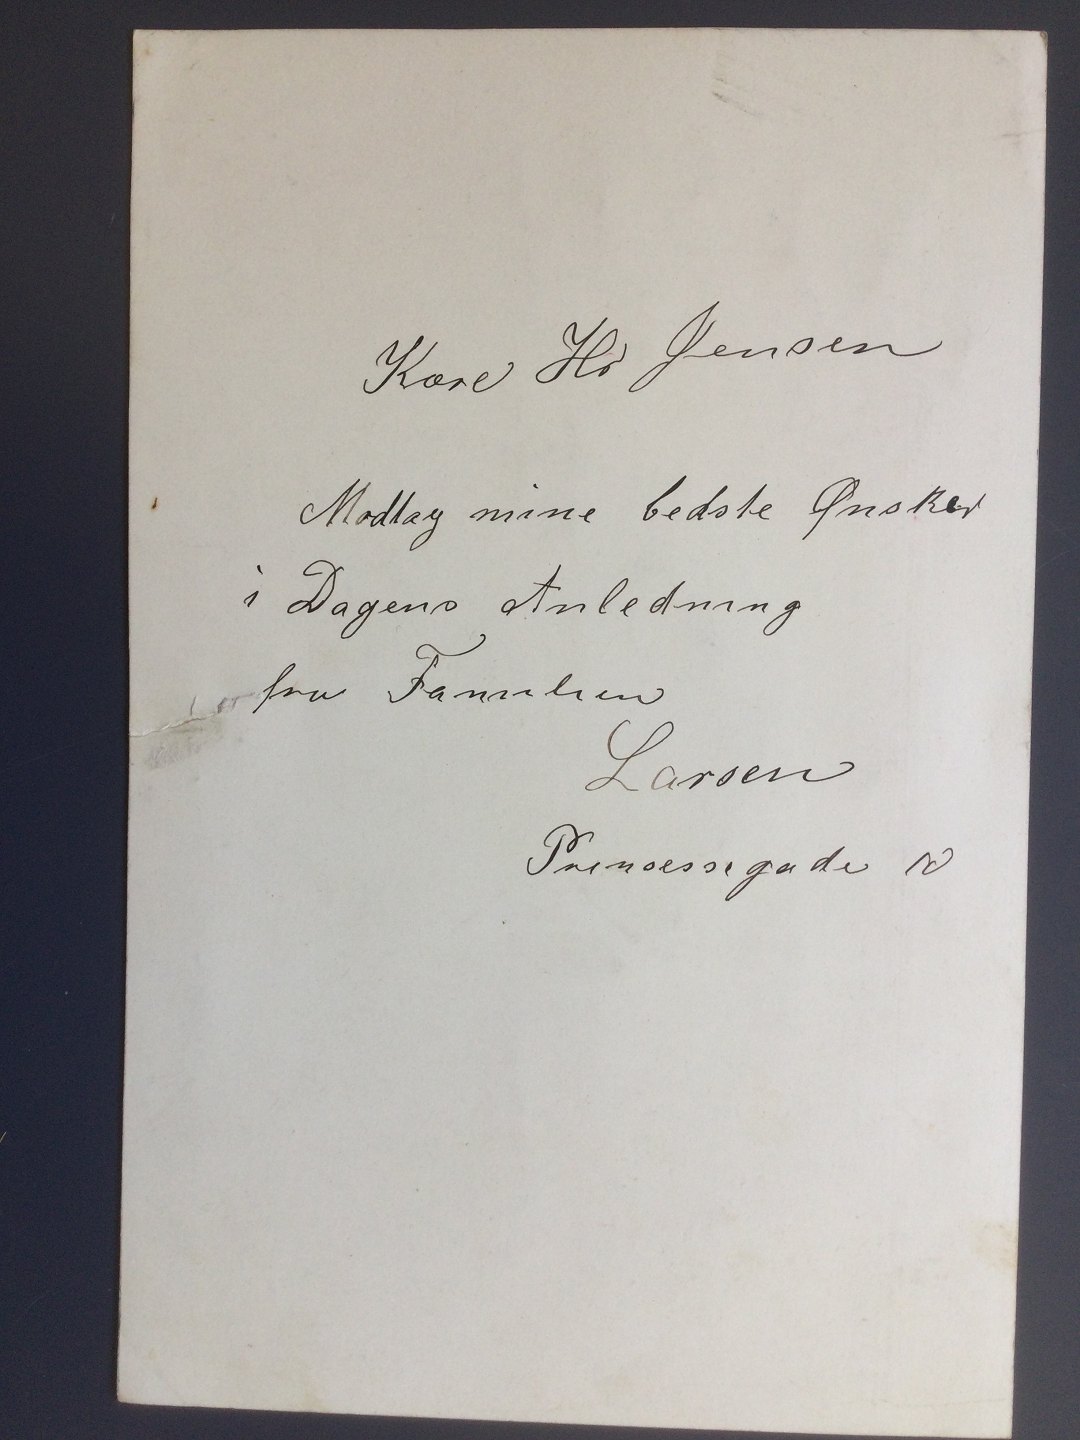 Kære Hr Jensen
Modtag mine bedste Ønsker
i Dagens Anledning
fra Familien
Larsen
Prensessegade